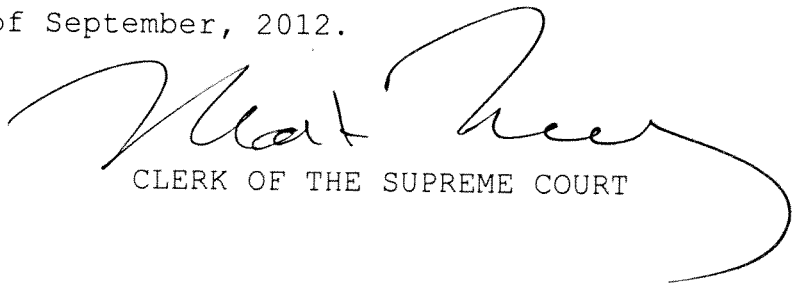 of September, 2012.
CLERK OF THE SUPREME COURT